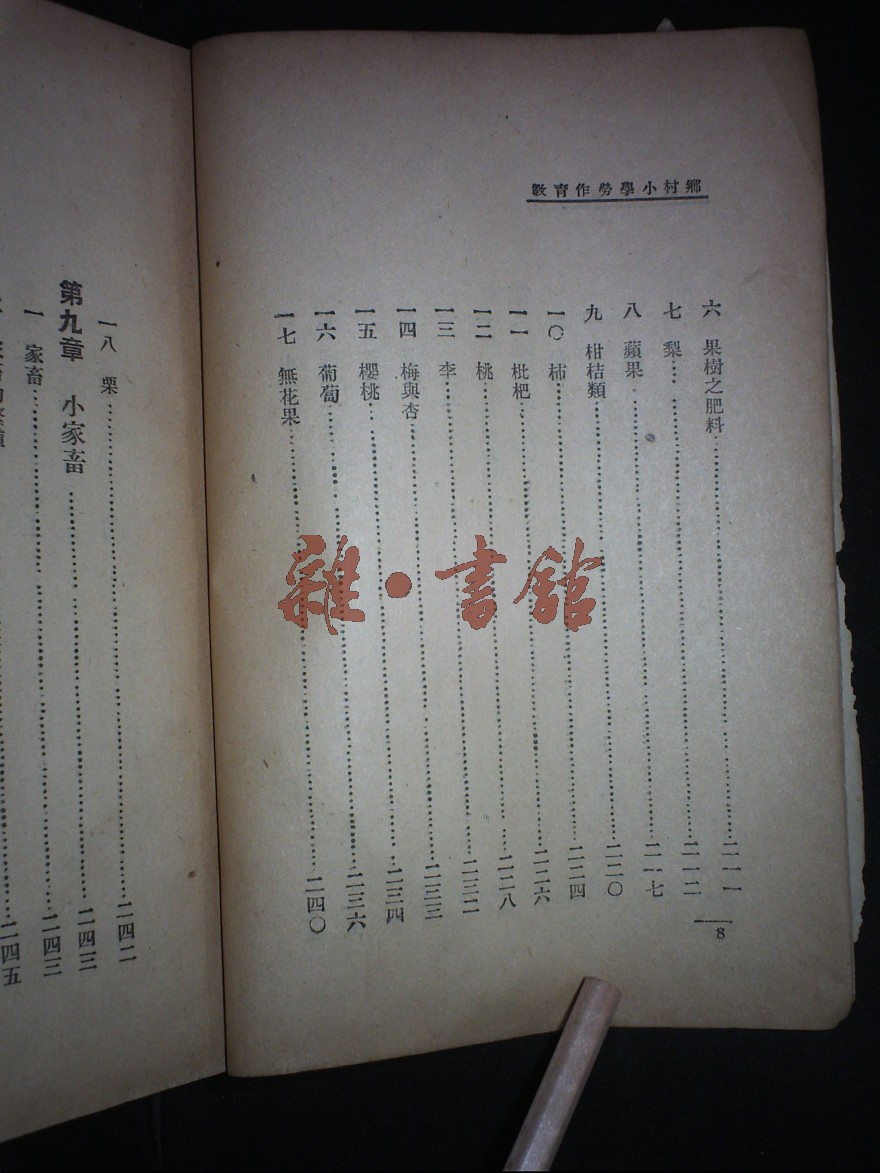 鄉村小學勞作育敎
六 果樹之肥料……二一一
七 梨……二一二
八 蘋果……二一七
九 柑桔類……二二〇
一〇 柿……二二四
一一 枇杷……二二六
一二 桃……二二八
一三 李……二三二
一四 梅與杏……二三三
一五 櫻桃……二三四
一六 葡萄……二三六
一七 無花果……二四〇
8
一八 栗……二四二
第九章 小家畜……二四三
一 家畜……二四三
二四五
雜·書館